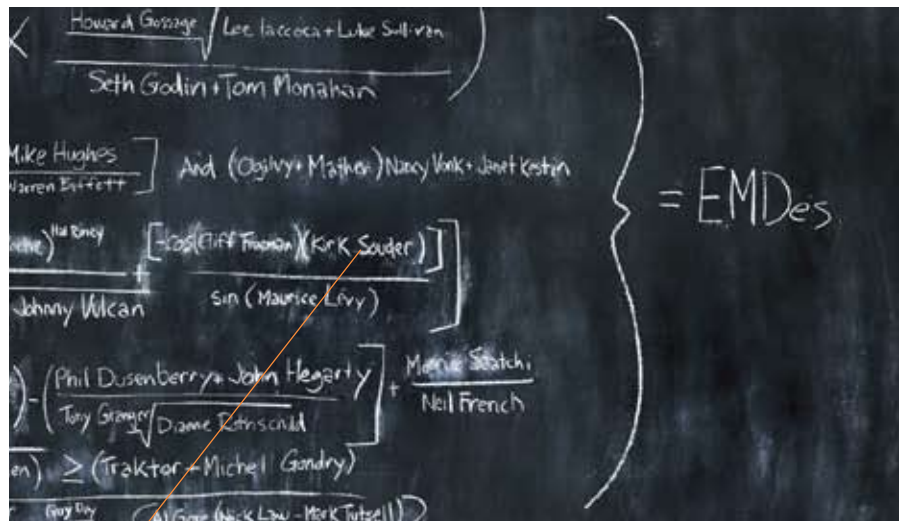 Howard Gossage √ Lee Iaccoca + Luke Sullivan
Seth Godin + Tom Monahan
Mike Hughes
Warren Buffett
And (Ogilvy + Mather) Nancy Vonk + Janet Kestin
= EMDes.
Hal Riney
[-cos(Cliff Freeman)(Kirk Souder)]
Johnny Vulcan
sin (Maurice Lévy)
(Phil Dusenberry + John Hegarty
Tony Granger √ Diane Rothschild
+ Saatchi
Neil French
≥ (Traktor + Michel Gondry)
Guy Day
Al Gore (Nick Law - Mark Tutsell)